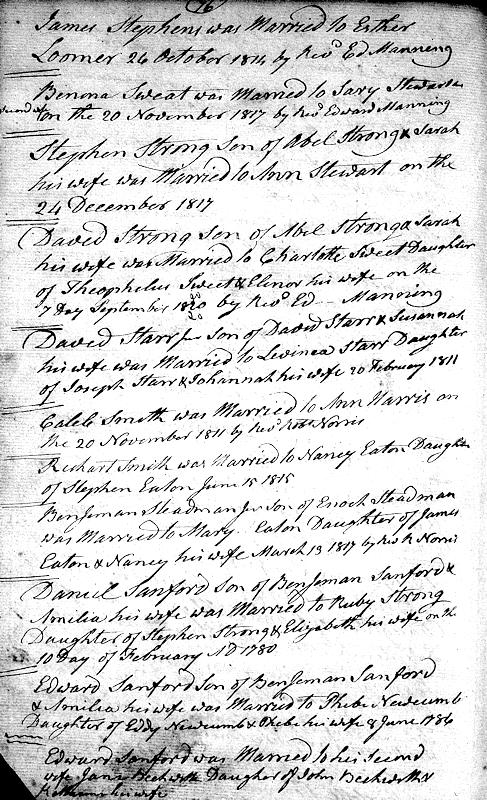 16
James Stephens was Married to Esther
Loomer 24 October 1814 by Revd Ed Manneng
Benona Sweat was Married to Sary Steward
on the 20 November 1817 by Revd Edward Manning
Stephen Strong Son of Abel Strong & Sarah
his wife was Married to Ann Stewart on the
24 December 1817
David Strong Son of Abel Strong & Sarah
his wife was Married to Charlotte Sweet Daughter
of Theophelus Sweet & Elinor his wife on the
7 Day September 1820 by Revd Ed Manning
David Starr Jur Son of David Starr & Susannah
his wife was Married to Levinea Starr Daughter
of Joseph Starr & Johannah his wife 20 February 1811
Caleb Smith was Married to Ann Harris on
the 20 November 1811 by Revd Robt Norris
Richart Smith was Married to Nancy Eaton Daughter
of Stephen Eaton June 15 1815
Benjeman Steadman Jur Son of Enoch Steadman
was Married to Mary Eaton Daughter of James
Eaton & Nancy his wife March 13 1817 by Revd R Norris
Daniel Sanford Son of Benjeman Sanford &
Amilia his wife was Married to Ruby Strong
Daughter of Stephen Strong & Elizabeth his wife on the
10 Day of February AD 1780
Edward Sanford Son of Benjeman Sanford
& Amilia his wife was Married to Phebe Newcumb
Daughter of Eddy Newcumb & Phebe his wife 8 June 1786
Edward Sanford was Married to his Second
wife Jane Beckwith Daugher of John Beckwith &
his wife